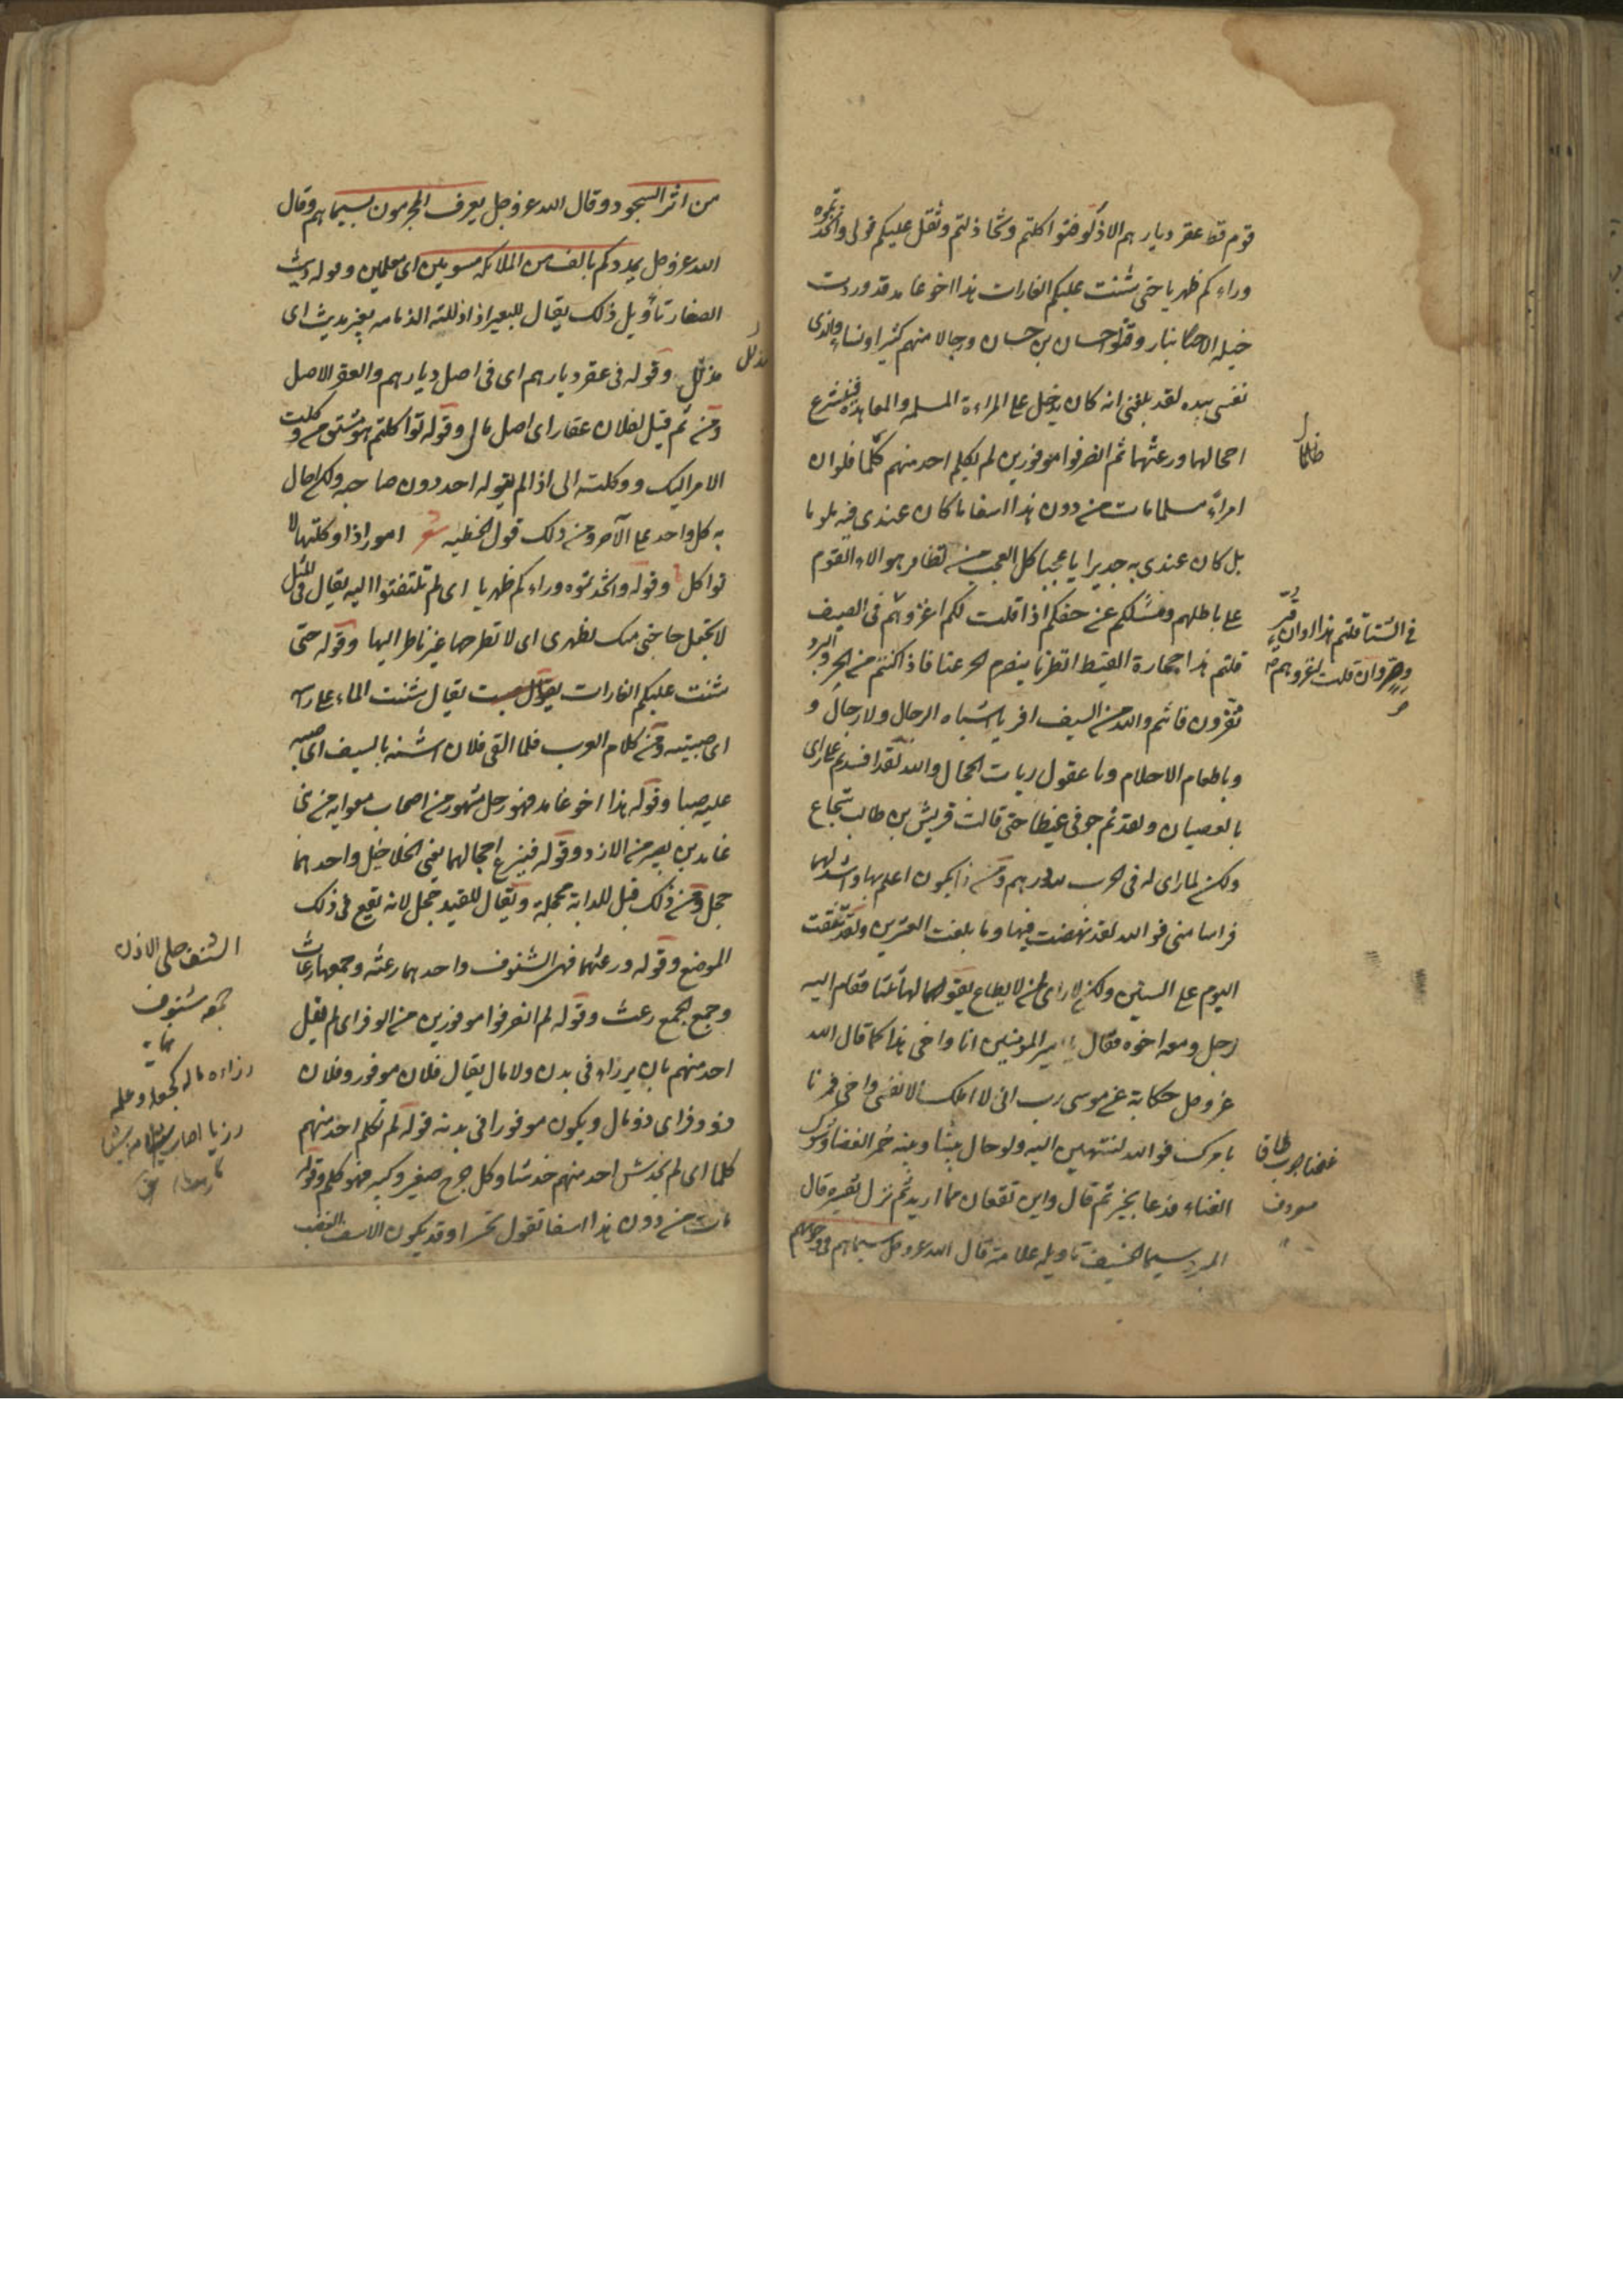 قوم قط عقر ديارهم الا ذلوا فتواكلتم وتخاذلتم وثقل عليكم قولى واتخذتموه
وراءكم ظهريا حتى شنت عليكم الغارات هذا اخو غامد قد وردت
خيله الانبار وقتلوا حسان بن حسان ورجالا منهم كثيرا ونساء والذى
نفسى بيده لقد بلغنى انه كان يدخل على المراءة المسلمه والمعاهدة فينتزع
احجالهما ورعثهما ثم انصرفوا موفورين لم يكلم احد منهم كلما فلو ان
امراء مسلما مات من دون هذا اسفا ما كان عندى فيه ملوما
بل كان عندى به جديرا يا عجبا كل العجب من تظافر هولاء القوم
على باطلهم وفشلكم عن حقكم اذا قلت لكم اغزوهم فى الصيف
قلتم هذا حمارة القيظ انظرنا ينصرم الحر عنا فاذا كنتم من الحر والبرد
تفرون فانتم والله من السيف افر يا اشباه الرجال ولا رجال و
ويا طغام الاحلام ويا عقول ربات الحجال والله لقد افسدتم على راى
بالعصيان ولقد ملاتم جوفى غيظا حتى قالت قريش بن طالب شجاع
ولكن لا راى له فى الحرب لله درهم ومن ذا يكون اعلم بها واشد لها
مراسا منى فوالله لقد نهضت فيها وما بلغت العشرين ولقد نيفت
اليوم على الستين ولكن لا راى لمن لا يطاع يقولها ثلثا فقام اليه
رجل ومعه اخوه فقال يا امير المومنين انا واخى هذا كما قال الله
عز وجل حكاية عن موسى رب انى لا املك الا نفسى واخى فمرنا
بامرك فوالله لننتهين اليه ولو حال بيننا وبينه جمر الغضا وشوك
القتاد فدعا بخير ثم قال واين تقعان مما اريد ثم نزل تفسيره قال
المبرد سيما الخسف تاويله علامة قال الله عز وجل سيماهم فى وجوههم
فى الشتا قلتم هذا اوان قر
وصر وان قلت لكم اغزوهم
من اثر السجود وقال الله عز وجل يعرف المجرمون بسيماهم وقال
الله عز وجل يمددكم بالف من الملائكه مسومين اى معلمين وقوله ديث
الصغار تأويل ذلك يقال للبعير اذا ذللته الرياضه بعير مديث اى
مذلل وقوله فى عقر ديارهم اى فى اصل ديارهم والعقر الاصل
ومن ثم قيل لفلان عقار اى اصل مال وقوله تواكلتم هو مشتق من وكلت
الامر اليك ووكلته الى اذا لم يتوله احد دون صاحبه ولكن احال
به كل واحد على الآخر ومن ذلك قول الحطيه شعر امور اذا وكلتها لا
تواكل وقوله واتخذتموه وراءكم ظهريا اى لم تلتفتوا اليه يقال فى المثل
لا تجعل حاجتى منك بظهرى اى لا تطرحها غير ناظر اليها وقوله حتى
شنت عليكم الغارات يقول صبت يقال شننت الماء على راسه
اى صببته ومن كلام العرب فلما القى فلان اشنه بالسيف اى صبه
عليه صبا وقوله هذا اخو غامد فهو رجل مشهور من اصحاب معويه من بنى
غامد بن نصر من الازد وقوله فينتزع احجالهما يعنى الخلاخيل واحدهما
حجل ومن ذلك قيل للدابة محجلة ويقال للقيد حجل لانه يقع فى ذلك
الموضع وقوله ورعثهما فهى الشنوف واحدهما رعثه وجمعها رعاث
وجمع الجمع رعث وقوله ثم انصرفوا موفورين من الوفر اى لم ينل
احد منهم بان يرزاء فى بدن ولا مال يقال فلان موفور وفلان
ذو وفر اى ذو مال ويكون موفورا فى بدنه قوله لم يكلم احد منهم
كلما اى لم يخدش احد منهم خدشا وكل جرح صغير وكبير فهو كلم وقوله
مات من دون هذا اسفا تقول تحسرا وقد يكون الاسف الغضب
مذلل
الشنف حلى الاذن
جمعه شنوف